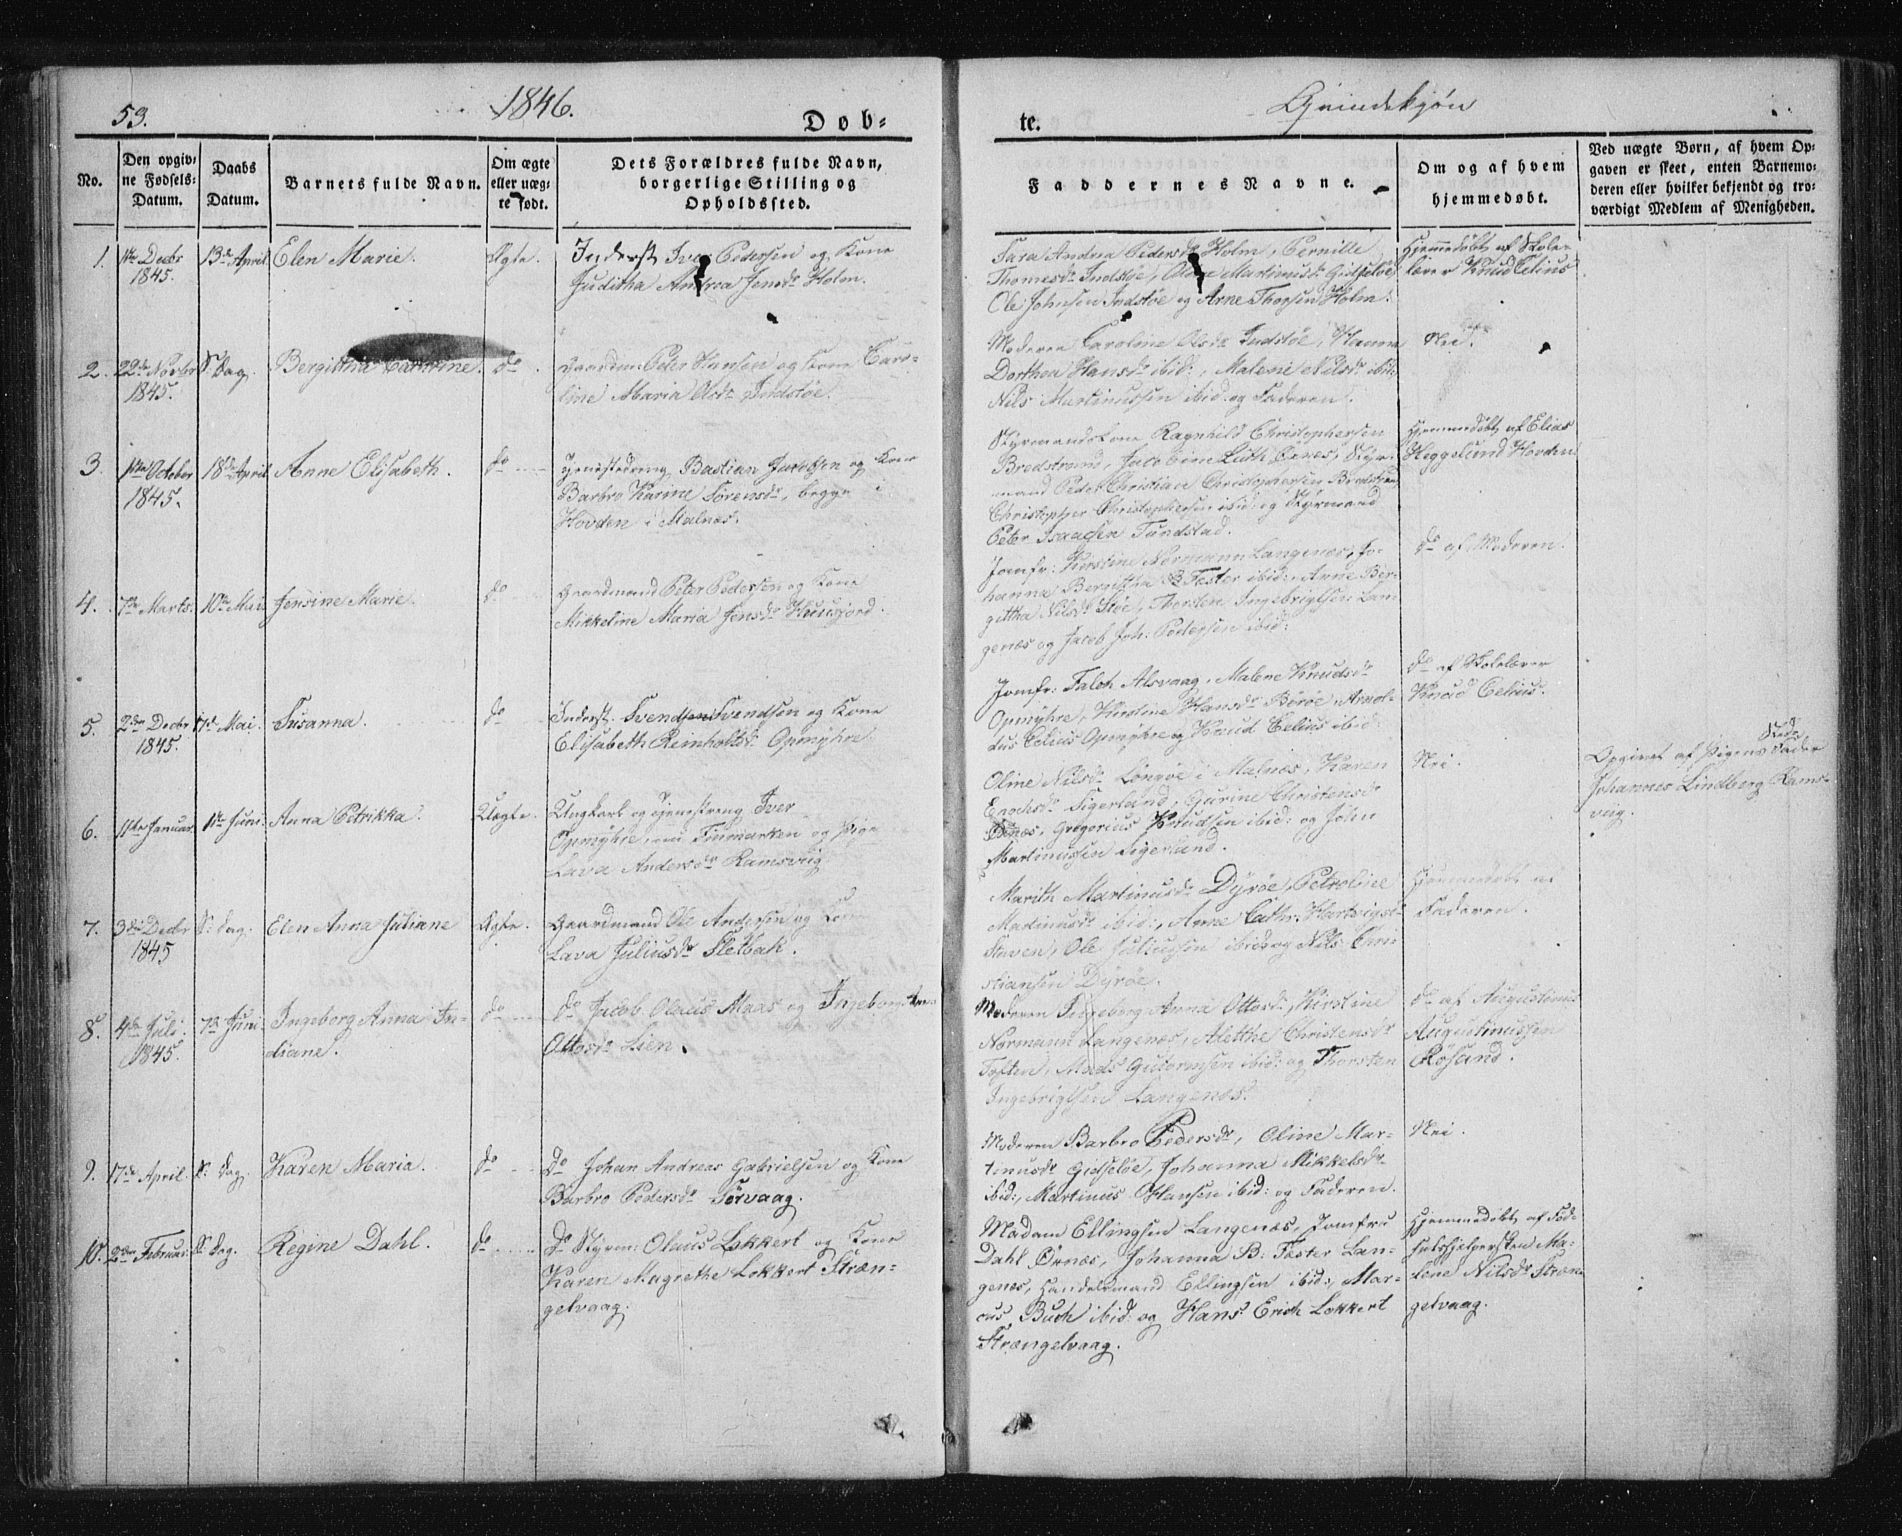 53.
1846.
Døb-
te.
Qvindekjøn
No.
Den opgiv-
ne Fødsels-
Datum.
Daabs
Datum.
Barnets fulde Navn.
Om ægte
eller uæg-
te født.
Dets Forældres fulde Navn,
borgerlige Stilling og
Opholdssted.
Faddernes Navne.
Om og af hvem
hjemmedøbt.
Ved uægte Børn, af hvem Op-
gaven er skeet, enten Barnemo-
deren eller hvilket bekjendt og tro-
værdigt Medlem af Menigheden.
1.
1ste Decbr
1845.
13de April
Elen Marie.
Ægte.
Inderst Iver Pedersen og Kone
Juditha Andrea Jensdr Holm.
Sara Andrea Pedersdr Holm, Pernille
Thomesdr Indstøe, Oline Martinusdr Gidsløe
Ole Johnsen Indstøe og Arne Thorsen Holm.
Hjemmedøbt af Skole-
lærer Knud Celius
2.
22de Novbr
1845.
S. Dag.
Bergitha Cathrine.
do
Gaardm: Peter Hansen og Kone Caro-
line Maria Olsdr Indstøe.
Moderen Caroline Olsdr Indstøe, Hanna
Dorthea Hansdr ibid:, Maleni Nilsdr ibid:
Nils Martinussen ibid: og Faderen.
Nei.
3.
1ste October
1845.
18de April
Anne Elisabeth.
do
Tjenestedreng Bastian Jacobsen og Kone
Barbro Karine Sørensdr, begge i
Hovden i Malnæs.
Styrmandskone Ragnhild Christophersen
Bredstrand, Jacobine Lüth Ørnes, Styr-
mand Peder Christian Christophersen Bredstrand
Christopher Christophersen ibid: og Styrmand
Peter Isaachsen Tundstad.
Hjemmedøbt af Elias
Heggelund Hovden
4.
7de Marts.
10de Mai
Jensine Marie.
do
Gaardmand Peter Pedersen og Kone
Mikkeline Maria Jensdr Skuvfjord.
Jomfr: Kirstine Normann Langenæs, Jo-
hanna Berntha B Foster ibid:, Anne Ber-
githa Nilsdr Støe, Thorsten Ingebrigtsen Lan-
genæs og Jacob Joh: Pedersen ibid:
do af Moderen.
5.
2den Decbr
1845.
17de Mai.
Susanna.
do
Inderst. Svendsen Svendsen og Kone
Elisabeth Reinholtsdr Opmyhre.
Jomfr: Falch Alsvaag, Malene Knudsdr
Opmyhre, Kirstine Hansdr Børøe, Arnol-
dus Celius Opmyhre og Knud Celius ibid:
do af Skolelærer
Knud Celius.
6.
11te Januar.
11te Juni.
Anna Petrikka.
Uægte.
Ungkarl og Tjenestdreng Iver
Opmyhre, nu Finmarken og Pige
Lava Andersdr Ramsviig
Oline Nilsdr Lønsøe i Malnæs, Karen
Enochsdr Tigerland, Gurine Christensdr
Ørnæs, Gregorius Knudsen ibid: og John
Martinussen Tigerland.
Nei.
Opgivet af Pigens Sted-
fader
Johannes Lindberg Rams-
viig.
7.
3die Decbr
1845
S. Dag.
Elen Anna Juliane
Ægte.
Gaardmand Ole Andersen og Kone
Lava Juliusdr Sletbak.
Marith Martinusdr Dyrøe, Petroline
Martinusdr ibid:, Anne Cathr: Hartvigsdr
Staven, Ole Juliussen ibid: og Nils Chri-
stiansen Dyrøe.
Hjemmedøbt af
Faderen.
8.
4de Juli
1845.
7de Juni
Ingeborg Anna In-
diane.
do
do Jacob Olaus Maas og Ingeborg An:
Ottosdr Lien.
Moderen Ingeborg Anna Ottosdr, Kirstine
Normann Langenæs, Alethe Christensdr
Toften, Mads Guttormsen ibid: og Thorsten
Ingebrigtsen Langenæs.
do af Augustinus
Augustinussen
Røsand.
9.
17de April.
S. Dag.
Karen Maria.
do
do Johan Andreas Gabrielsen og Kone
Barbro Pedersdr Tørvaag.
Moderen Barbro Pedersdr, Oline Mar-
tinusdr Gidsløe, Johanna Mikkelsdr
ibid:, Martinus OHansen ibid: og Faderen.
Nei.
10.
2den Februar.
S. Dag.
Regine Dahl.
do
do Styrm: Olaus Lokkert og Kone
Karen Magrethe Lokkert Stræn-
gelvaag.
Madam Ellingsen Langenæs, Jomfru
Dahl Ørnæs, Johanna B: Foster Lan-
genæs, Handelsmand Ellingsen ibid:, Mar-
cus Buch ibid: og Hans Erich Lokkert
Strængelvaag.
Hjemmedøbt af Fød-
selshjelpersken Ma-
lene Nilsdr Stræn-
gelvaag.